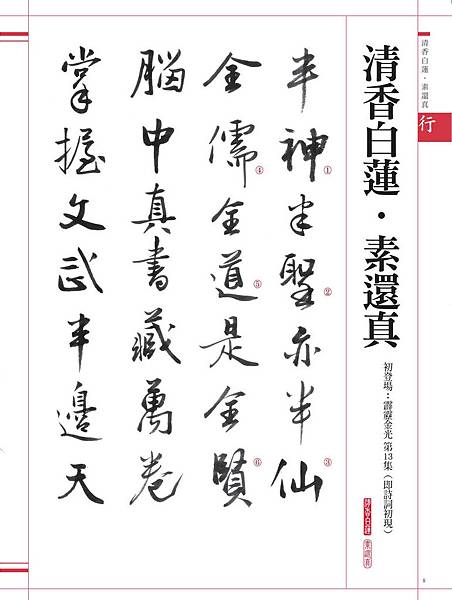 清香白蓮・素還真
行
清香白蓮・素還真
初登場：霹靂金光 第13集（即詩詞初現）
清香白蓮
素還真
半神半聖亦半仙
① ② ③
全儒全道是全賢
④ ⑤ ⑥
腦中真書藏萬卷
掌握文武半邊天